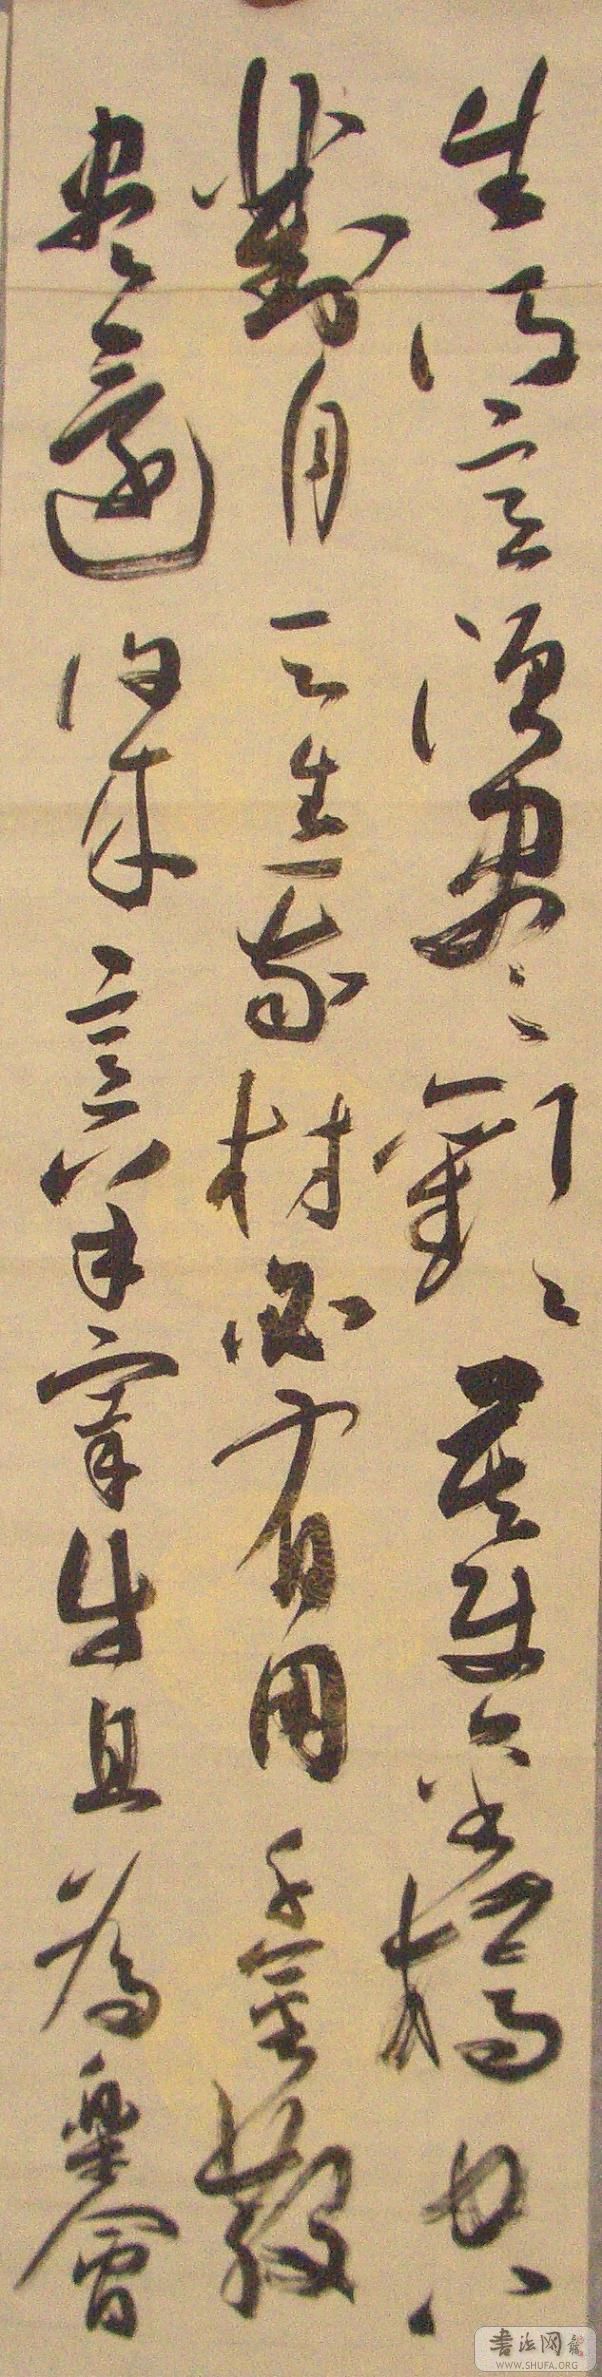 生得意須盡歡莫使金樽空
對月天生我材必有用千金散
盡還復來烹羊宰牛且為樂會
書法网
WWW.SHUFA.ORG